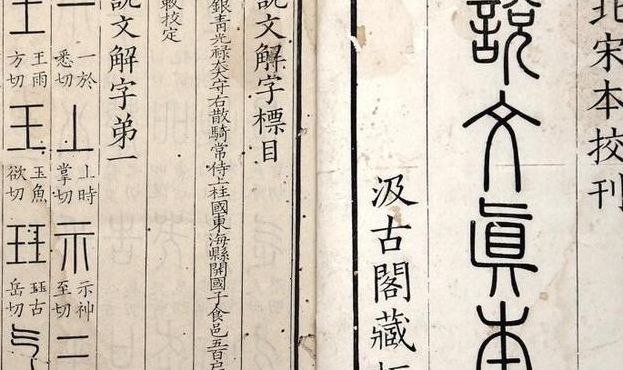 北宋本挍刊
說文眞本
汲古閣藏
說文解字標目
銀青光禄大夫守右散騎常侍上柱國東海縣開國子食邑五百户
挍定
說文解字弟一
一於悉切
丄時掌切
示神至切
二
王雨方切
玉魚欲切
玨古岳切